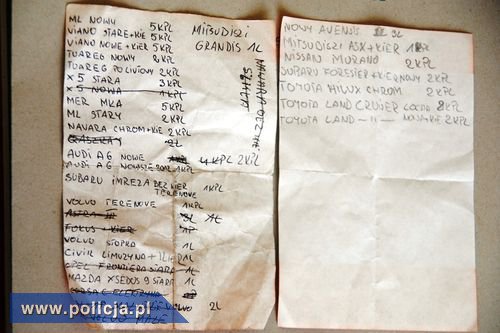 ML NOWY 5KPL
VIANO STARE+KIE 5KPL
VIANO NOWE+KIER 5KPL
TUAREG NOWY 2KPL
TUAREG POLIVIONY 2KPL
X5 STARA 3KPL
X5 NOWA 1KPL
MER ML4 5KPL
ML STARY 2KPL
NAVARA CHROM+KIE 2KPL
2L
AUDI A6 NOWE 4KPL 2KPL
AUDI A6 1KPL
SUBARU IMREZA BEZ KIER 1KPL
TERENOWE
VOLVO TERENOVE 1KPL
ASTRA III 1L
FOKUS+KIER 1P
VOLVO STOPRA 1L
CIVIK LIMUZYNA+ 1L
OPEL FRONTERA STARA 1L
MAZDA XSEDOS 9 STARA 1L
VOLVO 2L
MITSUDISZI
GRANDIS 1L
NAVARA BEZ KIE.
NOWY AVENSIS 2L
MITSUDISZI ASX+KIER 1KPL
NISSAN MURANO 2KPL
SUBARU FORESTER+KIERNOWY 2KPL
TOYOTA HILUX CHROM 2KPL
TOYOTA LAND CRUJSER 8KPL
TOYOTA LAND -II- NOWA+KIE 2KPL
www.policja.pl